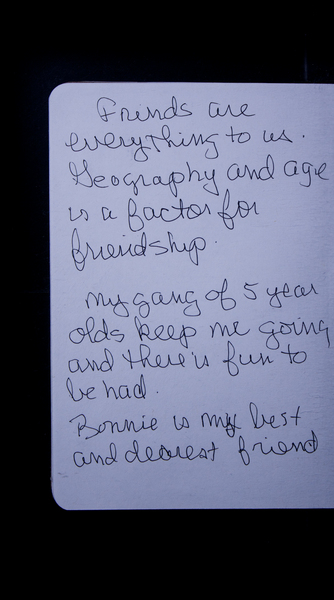 Frinds are
everything to us.
Geography and age
is a factor for
friendship.
My gang of 5 year
olds keep me going
and there is fun to
be had.
Bonnie is my best
and dearest friend